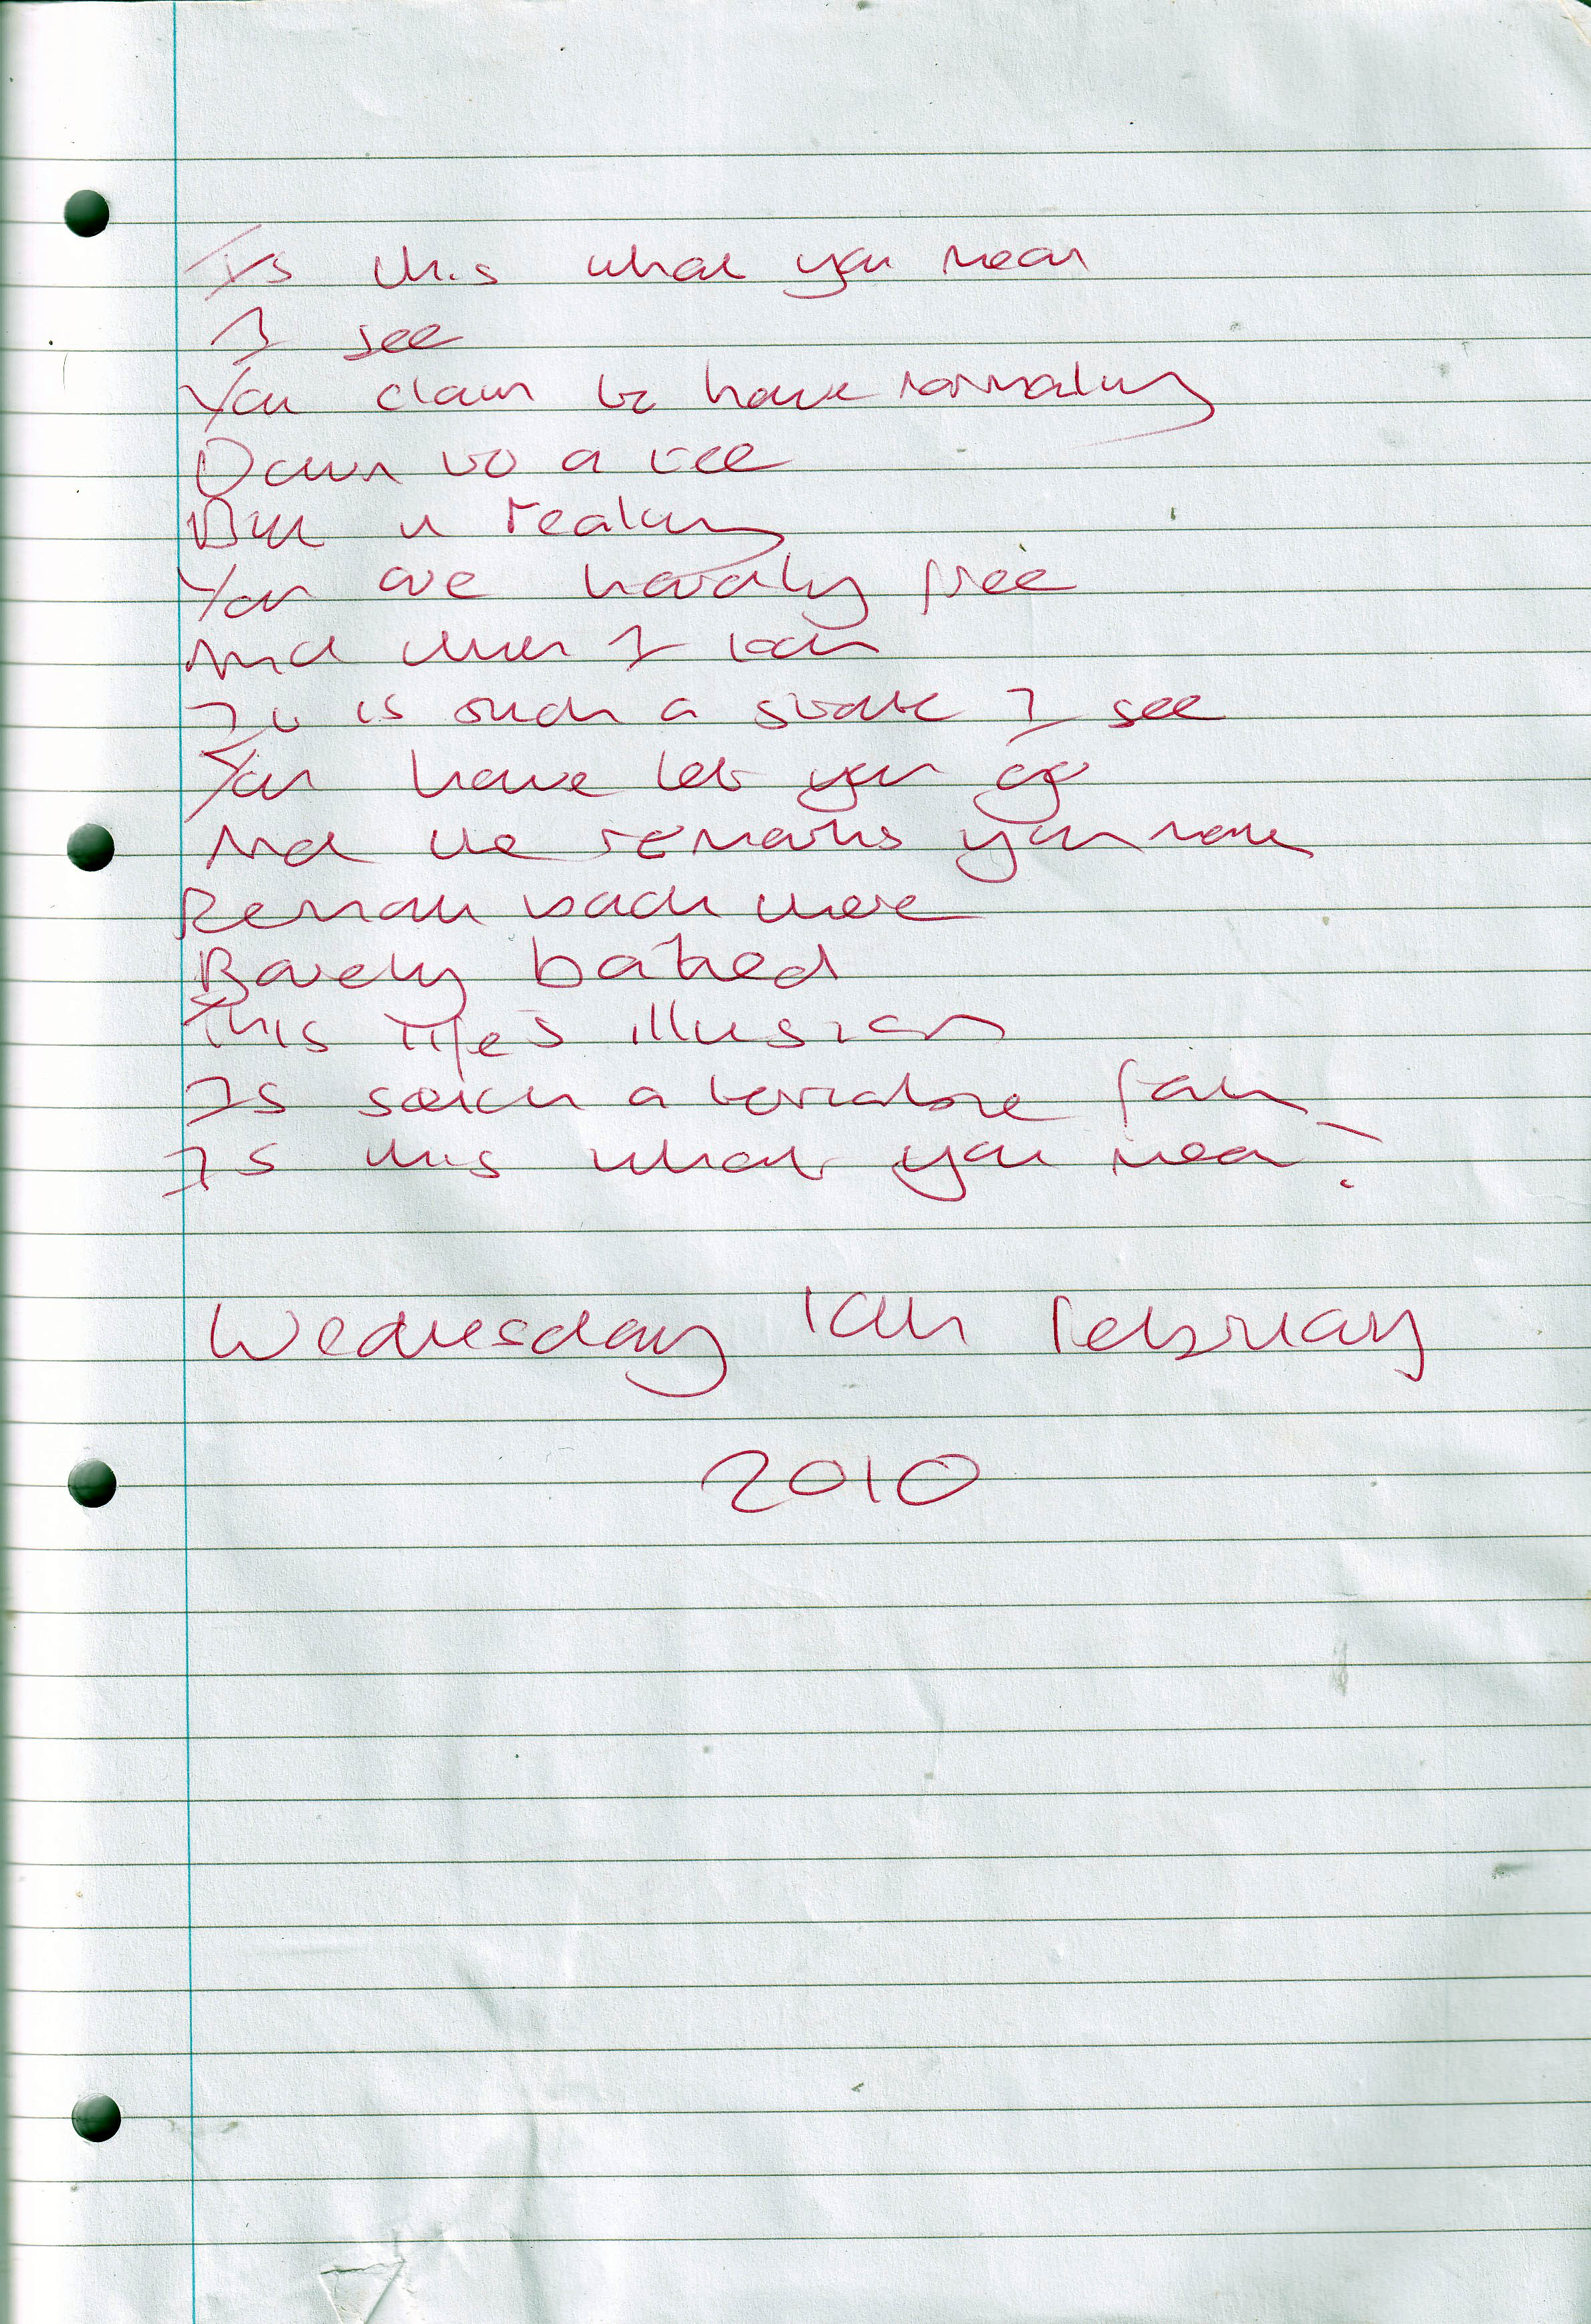 Is this what you mean
I see
You claim to have normality
Down to a tee
But in reality
You are hardly free
And when I look
It is such a state I see
You have let you go
And the remarks you make
Remain back there
Barely baked
This life's illusion
Is such a terrible
Is this what you mean?
Wednesday 10th February
2010